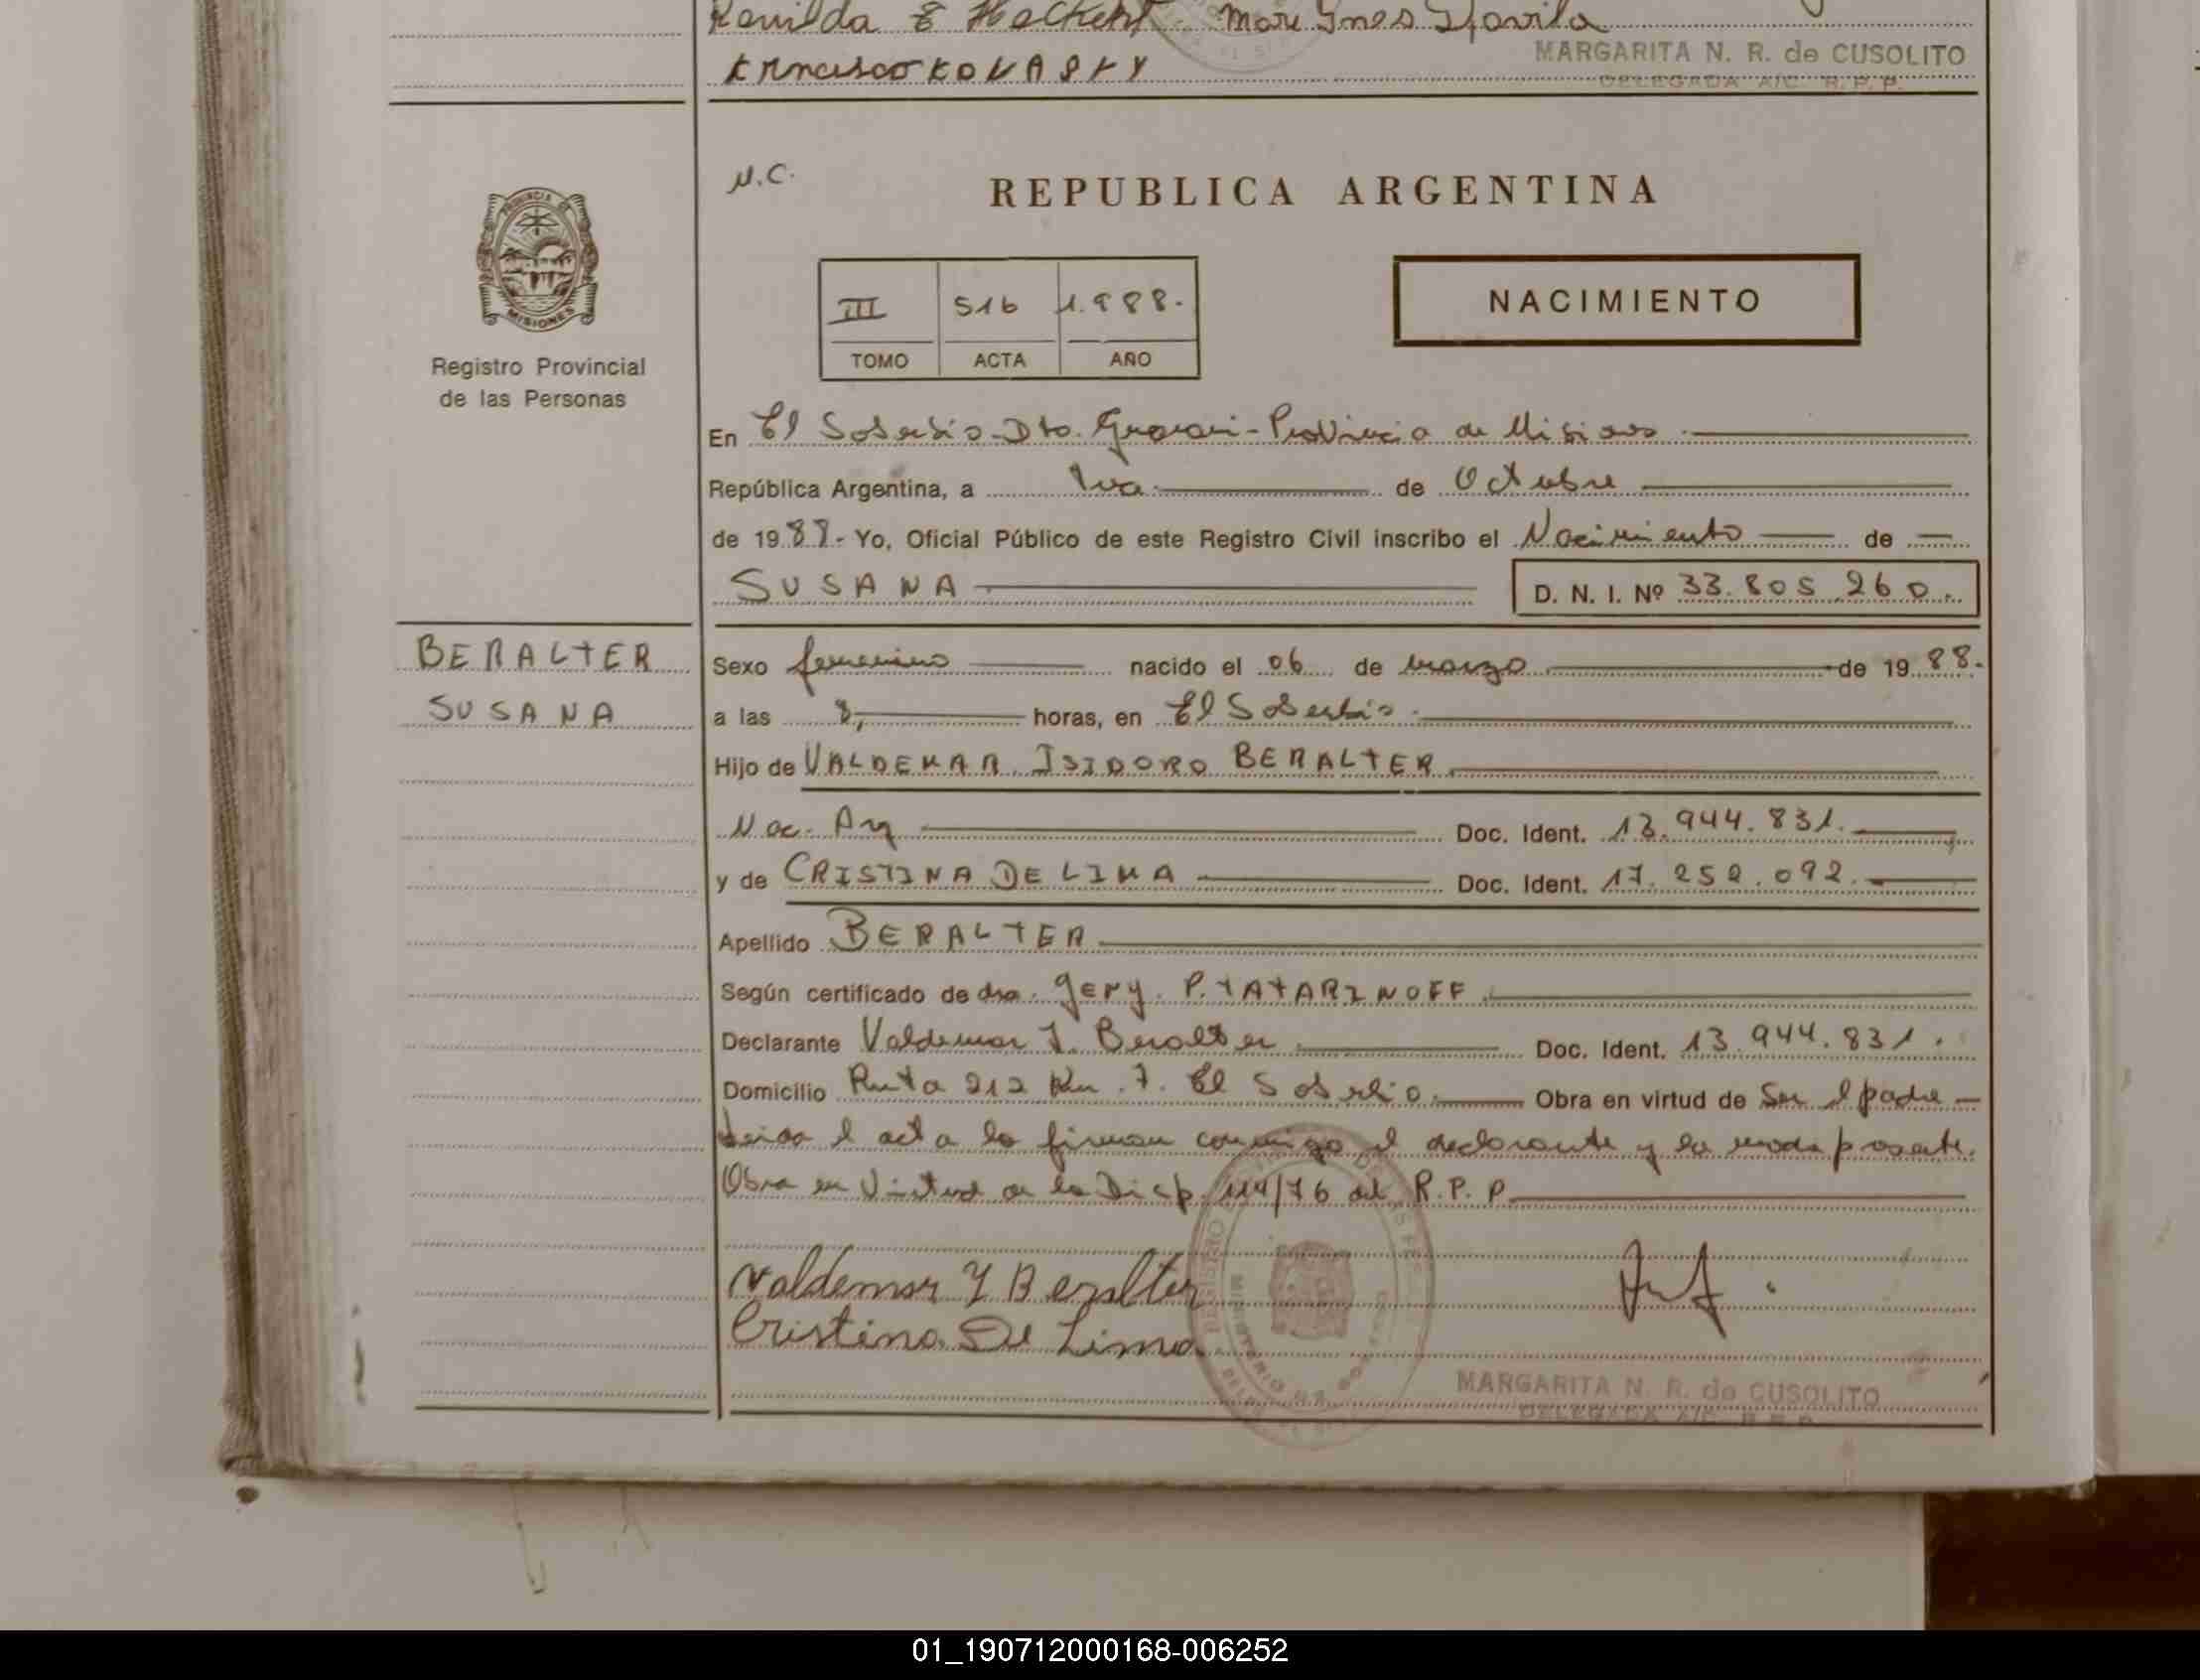 Romilda E Hackenh Mari Ines Davila
Francisco KOVASKY
MARGARITA N. R. de CUSOLITO
DELEGADA A/C. R. P. P.
N.C.
REPUBLICA ARGENTINA
PROVINCIA DE
MISIONES
Registro Provincial
de las Personas
III 516 1.988.
TOMO ACTA AÑO
NACIMIENTO
En El Soberbio-Dto. Guarani-Provincia de Misiones
República Argentina, a tres de Octubre
de 1988- Yo, Oficial Público de este Registro Civil inscribo el Nacimiento de
SUSANA D. N. I. Nº 33.805.260.
BERALTER
SUSANA
Sexo femenino nacido el 06 de marzo de 1988.
a las 8, horas, en El Soberbio.
Hijo de VALDEMAR ISIDORO BERALTER
Nac. Arg Doc. Ident. 13.944.831.
y de CRISTINA DE LIMA Doc. Ident. 17.252.092.
Apellido BERALTER
Según certificado de dra. Geny. P. TATARINOFF
Declarante Valdemar I. Beralter Doc. Ident. 13.944.831.
Domicilio Ruta 212 Km. 7. El Soberbio. Obra en virtud de Ser el padre
leida el acta la firman conmigo el declarante y la madre presente.
Obra en Virtud de la Disp. 114/76 del R.P.P.
Valdemar Y Beralter
Cristina De Lima
MARGARITA N. R. de CUSOLITO
DELEGADA A/C. R.P.P.
01_190712000168-006252